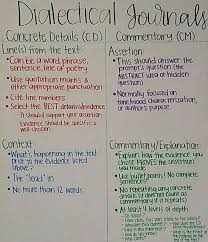 Dialectical Journals
Concrete Details (CD)
Line(s) from the text:
• Can be a word, phrase,
sentence, line of poetry
• Use quotation marks &
other appropriate punctuation
• Cite line numbers
• Select the BEST details/evidence
→ It should support your assertion
→ Evidence should be specific &
well chosen
Context
• What's happening in the text
prior to the evidence listed
above?
• The "lead in"
• No more than 12 words
Commentary (CM)
Assertion
• This should answer the
prompt's question (the
ABSTRACT idea or hidden
question)
• Normally focused on
tone/mood, characterization,
or author's purpose
Commentary/Explanation:
• Explain how the evidence you
chose PROVES the assertion
you made
• Use bullet points! No complete
sentences!
• No repeating any concrete
details (it doesn't count as
Commentary if it repeats)
• At least 4 layers of depth